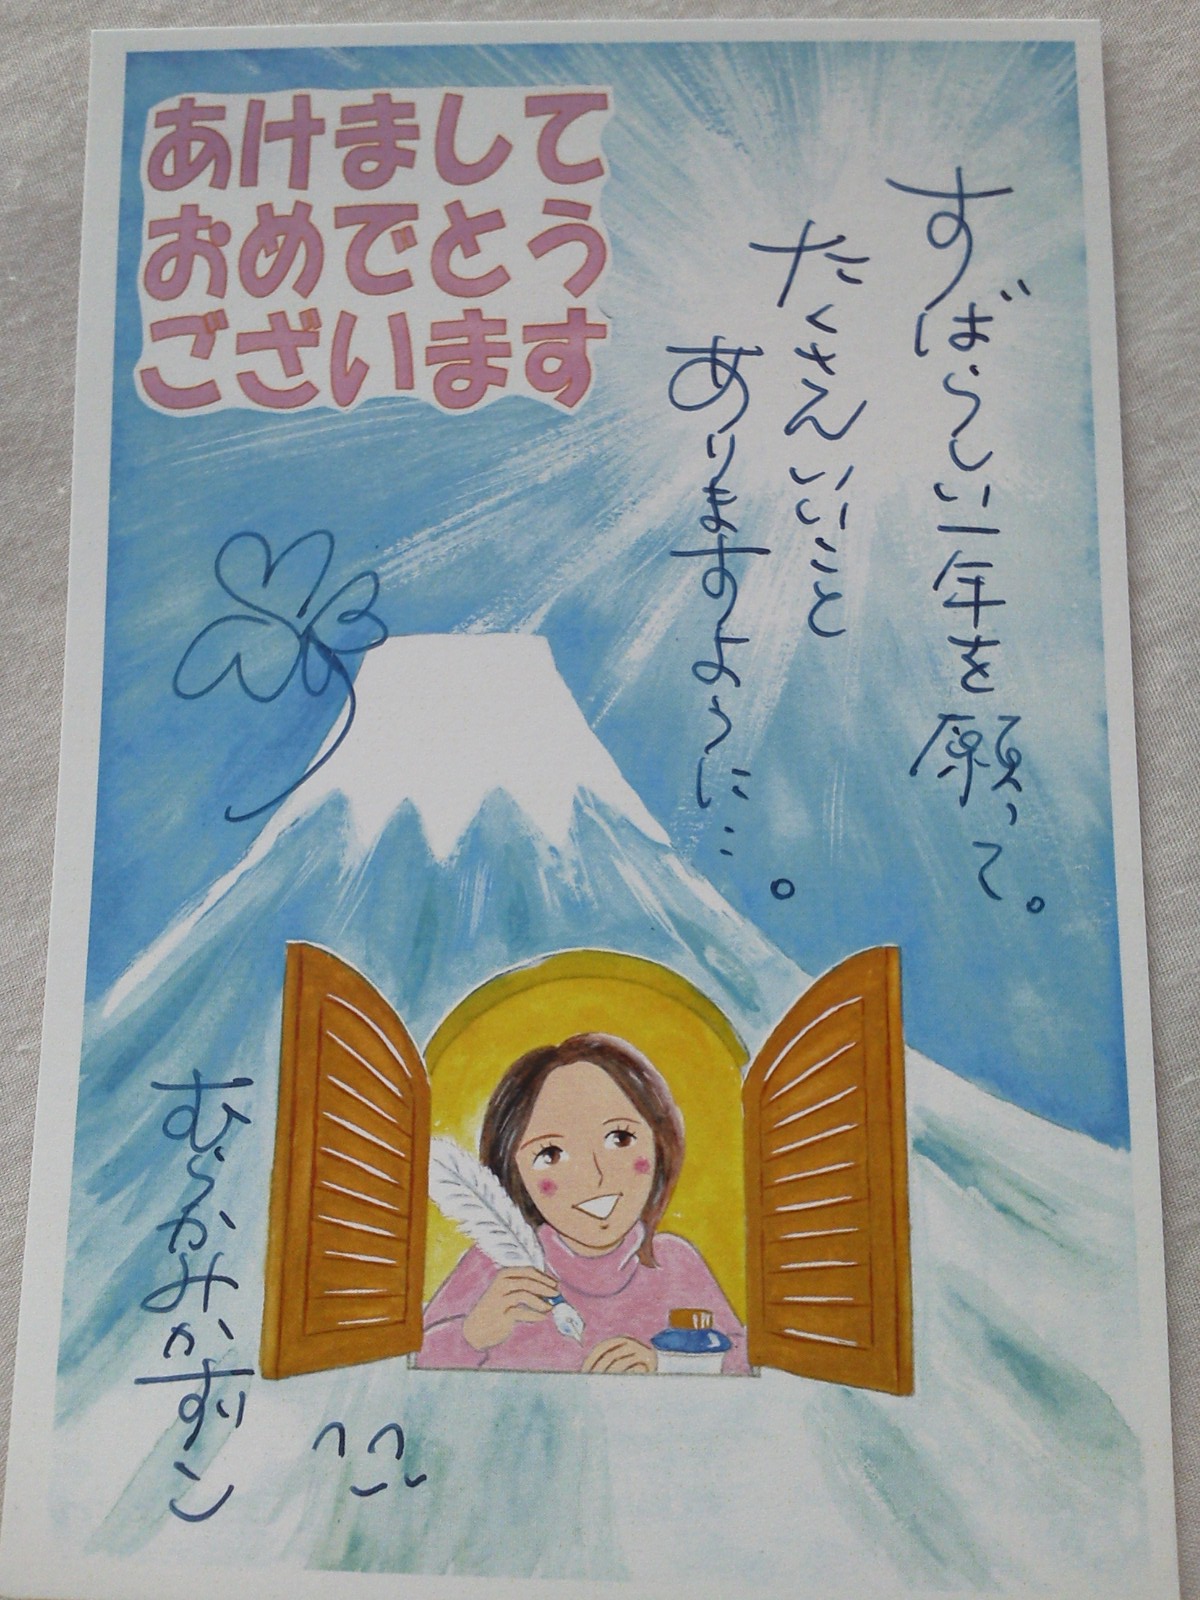 あけまして
おめでとう
ございます
すばらしい一年を願って。
たくさんいいこと
ありますように…。
むらかみかずこ